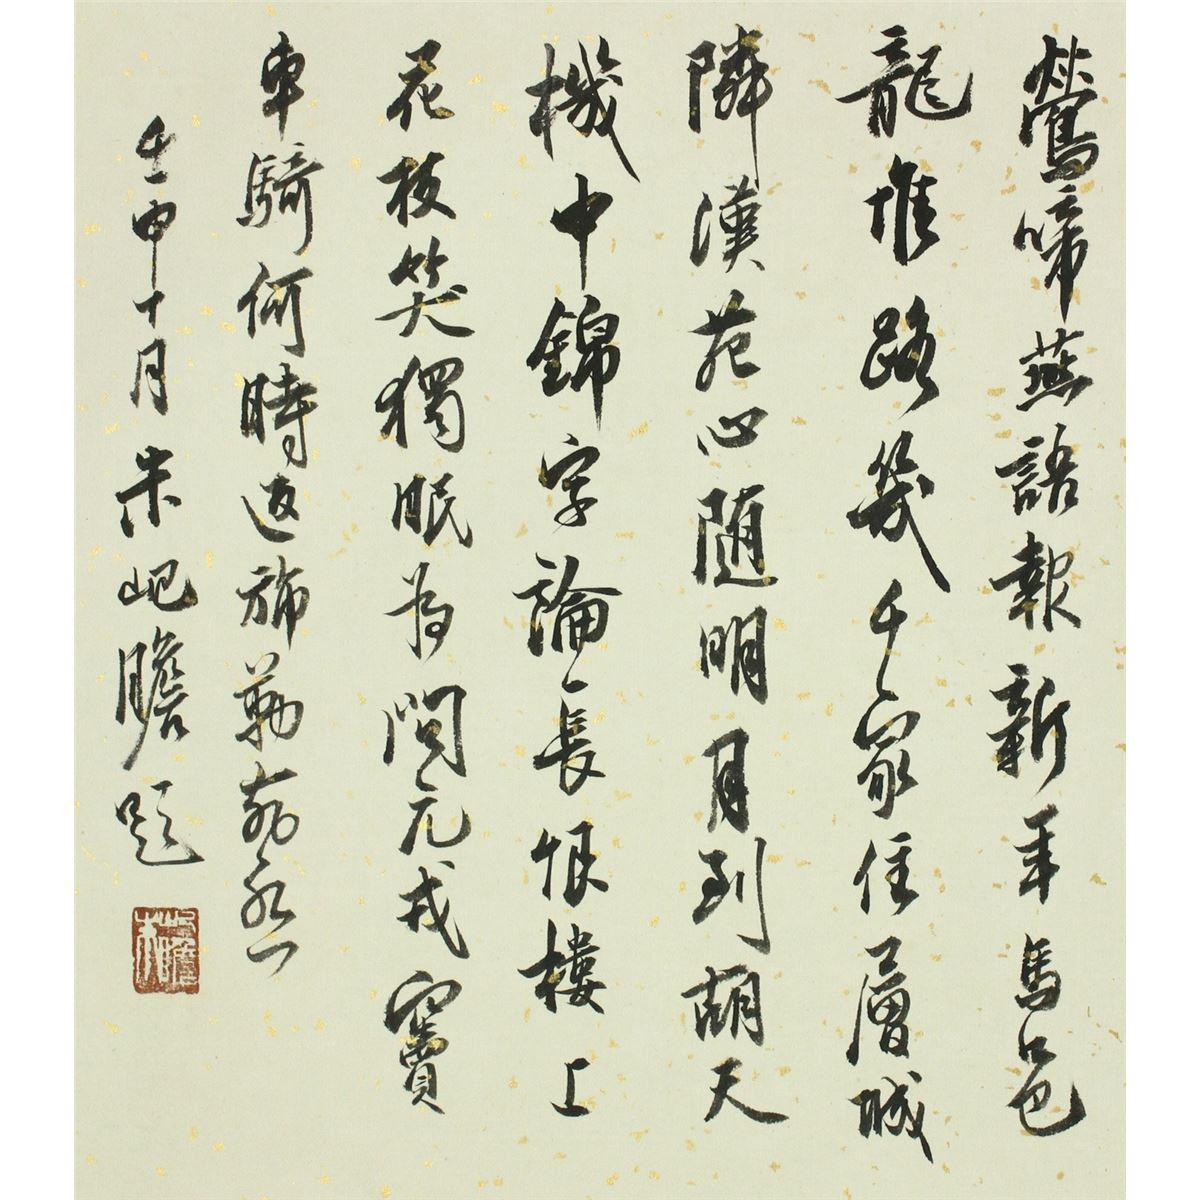 鶯啼燕語報新年馬邑
龍堆路幾千家住層城
隣漢苑心隨明月到胡天
機中錦字論長恨樓上
花枝笑獨眠為問元戎竇
車騎何時返旆勒燕然
壬申十月朱屺瞻題
朱屺瞻